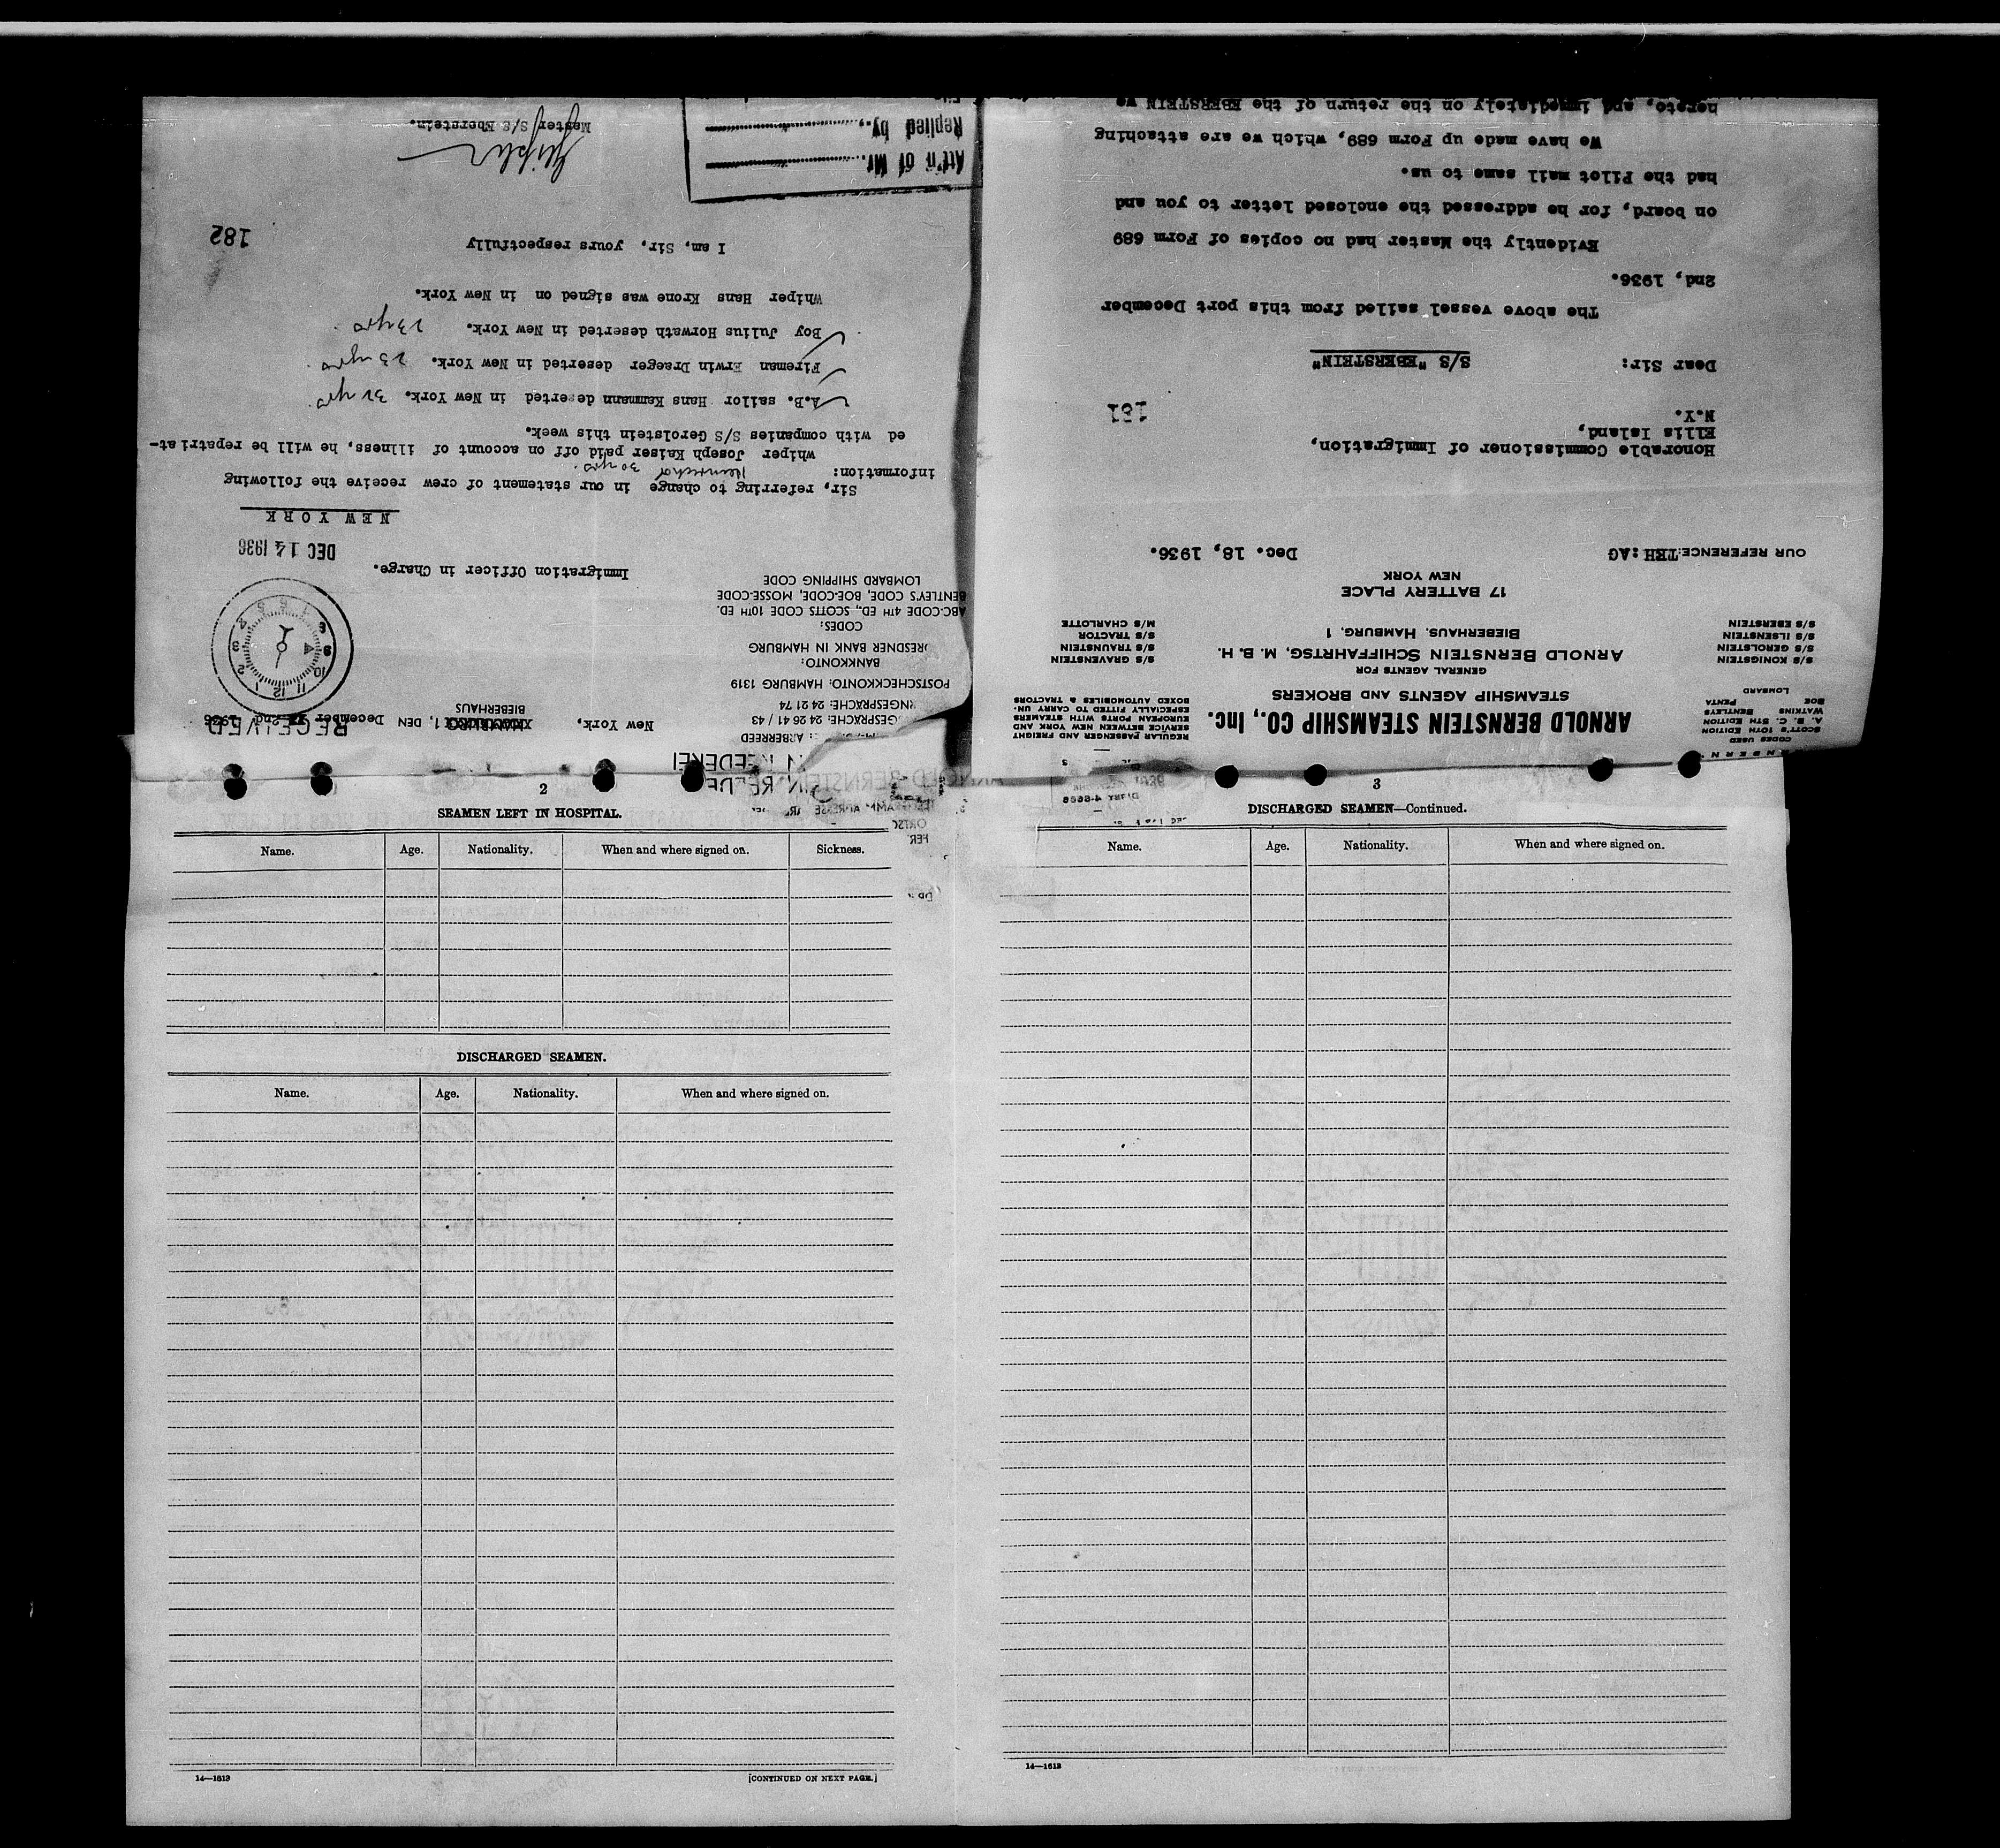 ARNOLD BERNSTEIN STEAMSHIP CO., Inc.
STEAMSHIP AGENTS AND BROKERS
GENERAL AGENTS FOR
ARNOLD BERNSTEIN SCHIFFAHRTSG, M. B. H.
BIEBERHAUS, HAMBURG, 1
17 BATTERY PLACE
NEW YORK
CODES USED
SCOTT'S 10TH EDITION
A. B. C. 5TH EDITION
WATKINS BENTLEYS
BOE PENTA
LOMBARD
S/S KONIGSTEIN
S/S GEROLSTEIN
S/S ILSENSTEIN
S/S EBERSTEIN
REGULAR PASSENGER AND FREIGHT
SERVICE BETWEEN NEW YORK AND
EUROPEAN PORTS WITH STEAMERS
ESPECIALLY FITTED TO CARRY UN-
BOXED AUTOMOBILES & TRACTORS
S/S GRAVENSTEIN
S/S TRAUNSTEIN
S/S TRACTOR
M/S CHARLOTTE
OUR REFERENCE: TRH:AG
Dec. 18, 1936.
Honorable Commissioner of Immigration,
Ellis Island,
N.Y.
181
Dear Sir:
S/S "EBERSTEIN"
The above vessel sailed from this port December
2nd, 1936.
Evidently the Master had no copies of Form 689
on board, for he addressed the enclosed letter to you and
had the Pilot mail same to us.
We have made up Form 689, which we are attaching
hereto, and immediately on the return of the EBERSTEIN we
REEDEREI
ARBERREED
24 26 41 / 43
24 21 74
POSTSCHECKKONTO: HAMBURG 1319
BANKKONTO:
DRESDNER BANK IN HAMBURG
CODES:
ABC-CODE 4TH ED., SCOTTS CODE 10TH ED.
BENTLEY'S CODE, BOE-CODE, MOSSE-CODE
LOMBARD SHIPPING CODE
New York,
BIEBERHAUS
1, DEN December 2nd 1936
RECEIVED
DEC 14 1936
Immigration Officer in Charge.
NEW YORK
Sir, referring to change in our statement of crew receive the following
information:
30 yrs.
whiper Joseph Kaiser paid off on account of illness, he will be repatriat-
ed with companies S/S Gerolstein this week.
A.B. sailor Hans Kammann deserted in New York. 32 yrs
Fireman Erwin Draeger deserted in New York. 23 yrs
Boy Julius Horwath deserted in New York. 23 yrs
Whiper Hans Krone was signed on in New York.
I am, Sir, yours respectfully
182
Master S/S Eberstein.
Att'n of Mr.
Replied by
2
SEAMEN LEFT IN HOSPITAL.
Name. Age. Nationality. When and where signed on. Sickness.
DISCHARGED SEAMEN.
Name. Age. Nationality. When and where signed on.
14—1613
[CONTINUED ON NEXT PAGE.]
3
DISCHARGED SEAMEN—Continued.
Name. Age. Nationality. When and where signed on.
14—1613